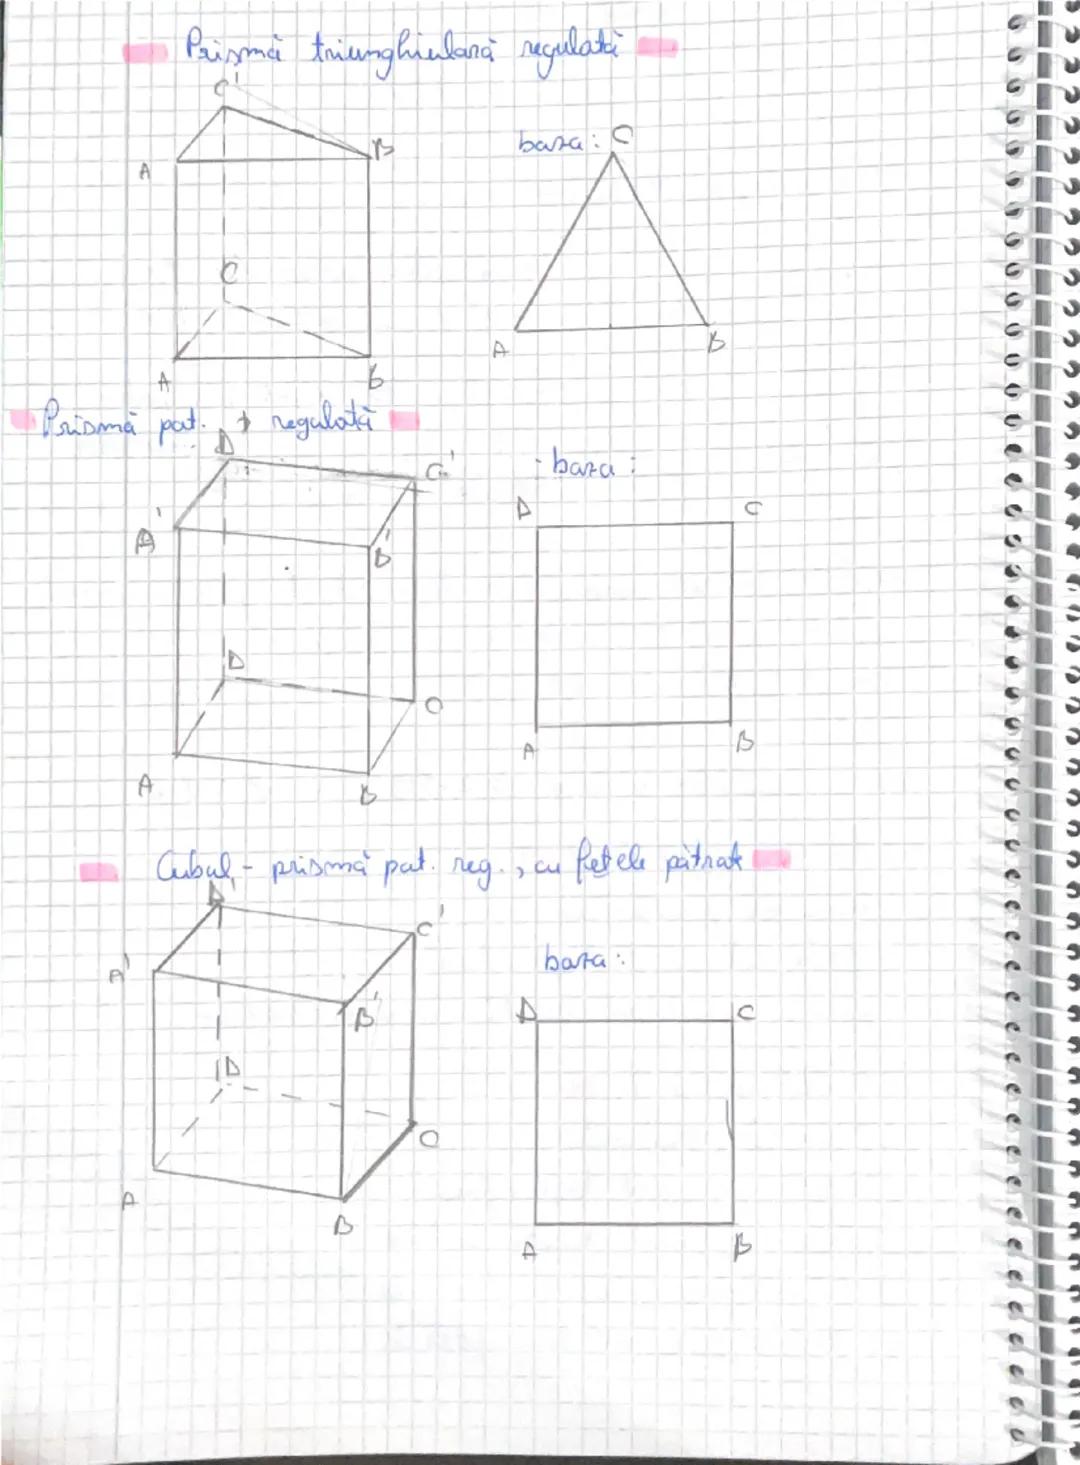 Prismă triunghiulară regulată
C'
A
B
C
A
B
baza: C
A
B
Prismă pat. regulată
D
C'
A'
B'
D
C
A
B
- baza :
D
C
A
B
Cubul - prismă pat. reg., cu fețele pătrat
D'
C'
A'
B'
D
C
A
B
baza :
D
C
A
B